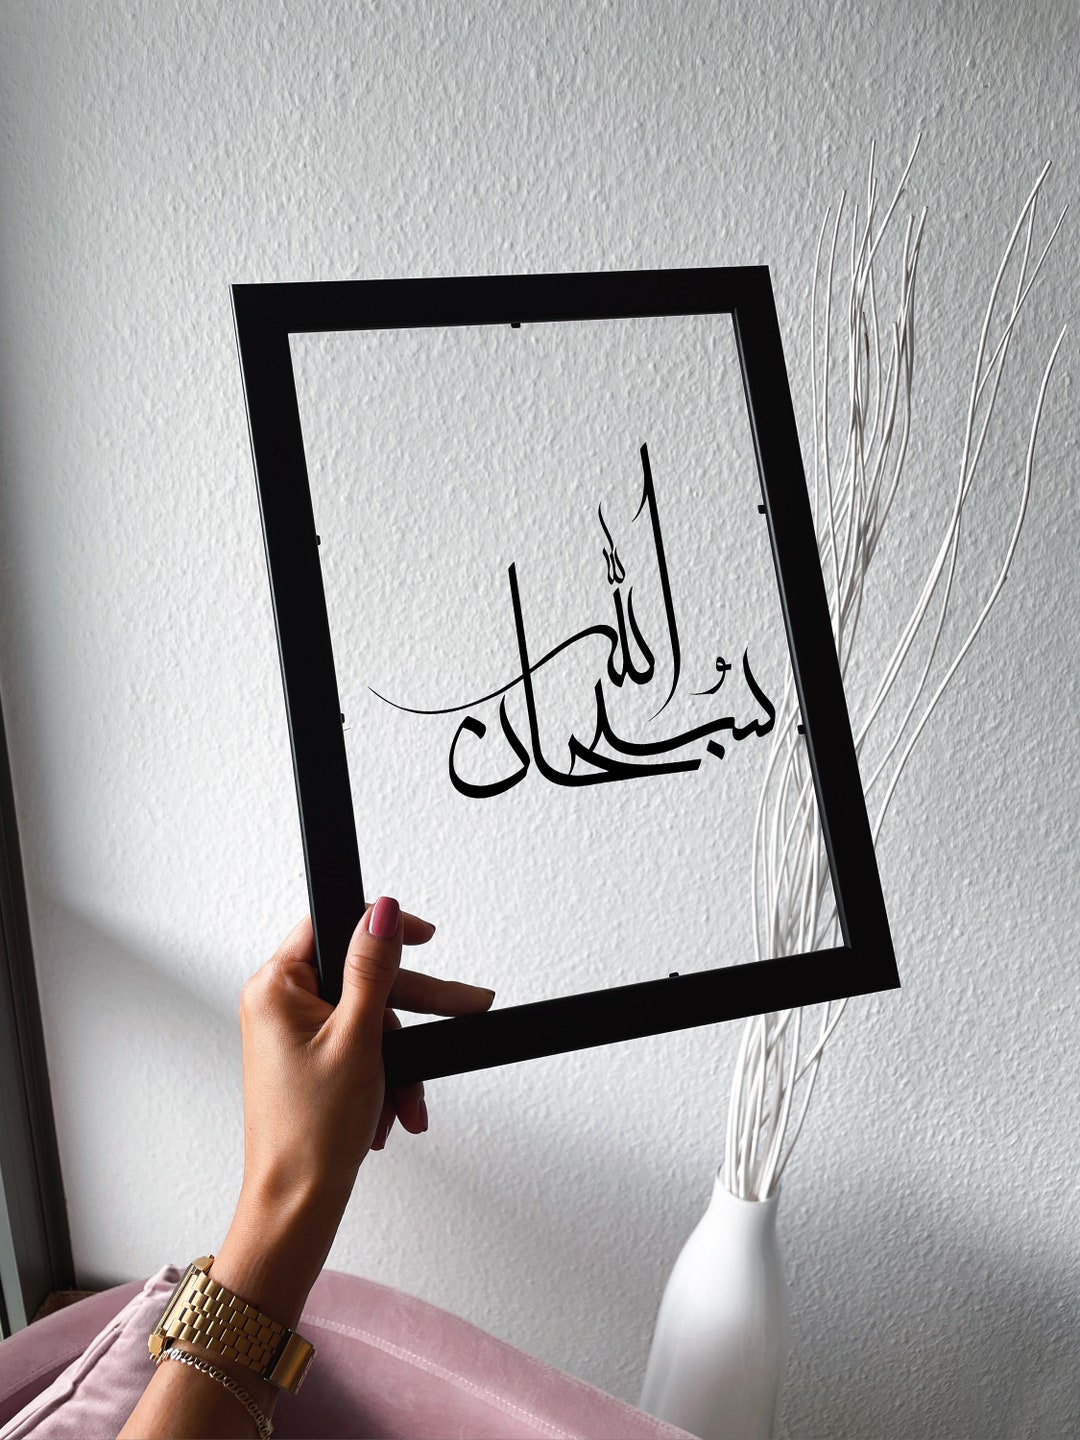 سُبحان الله